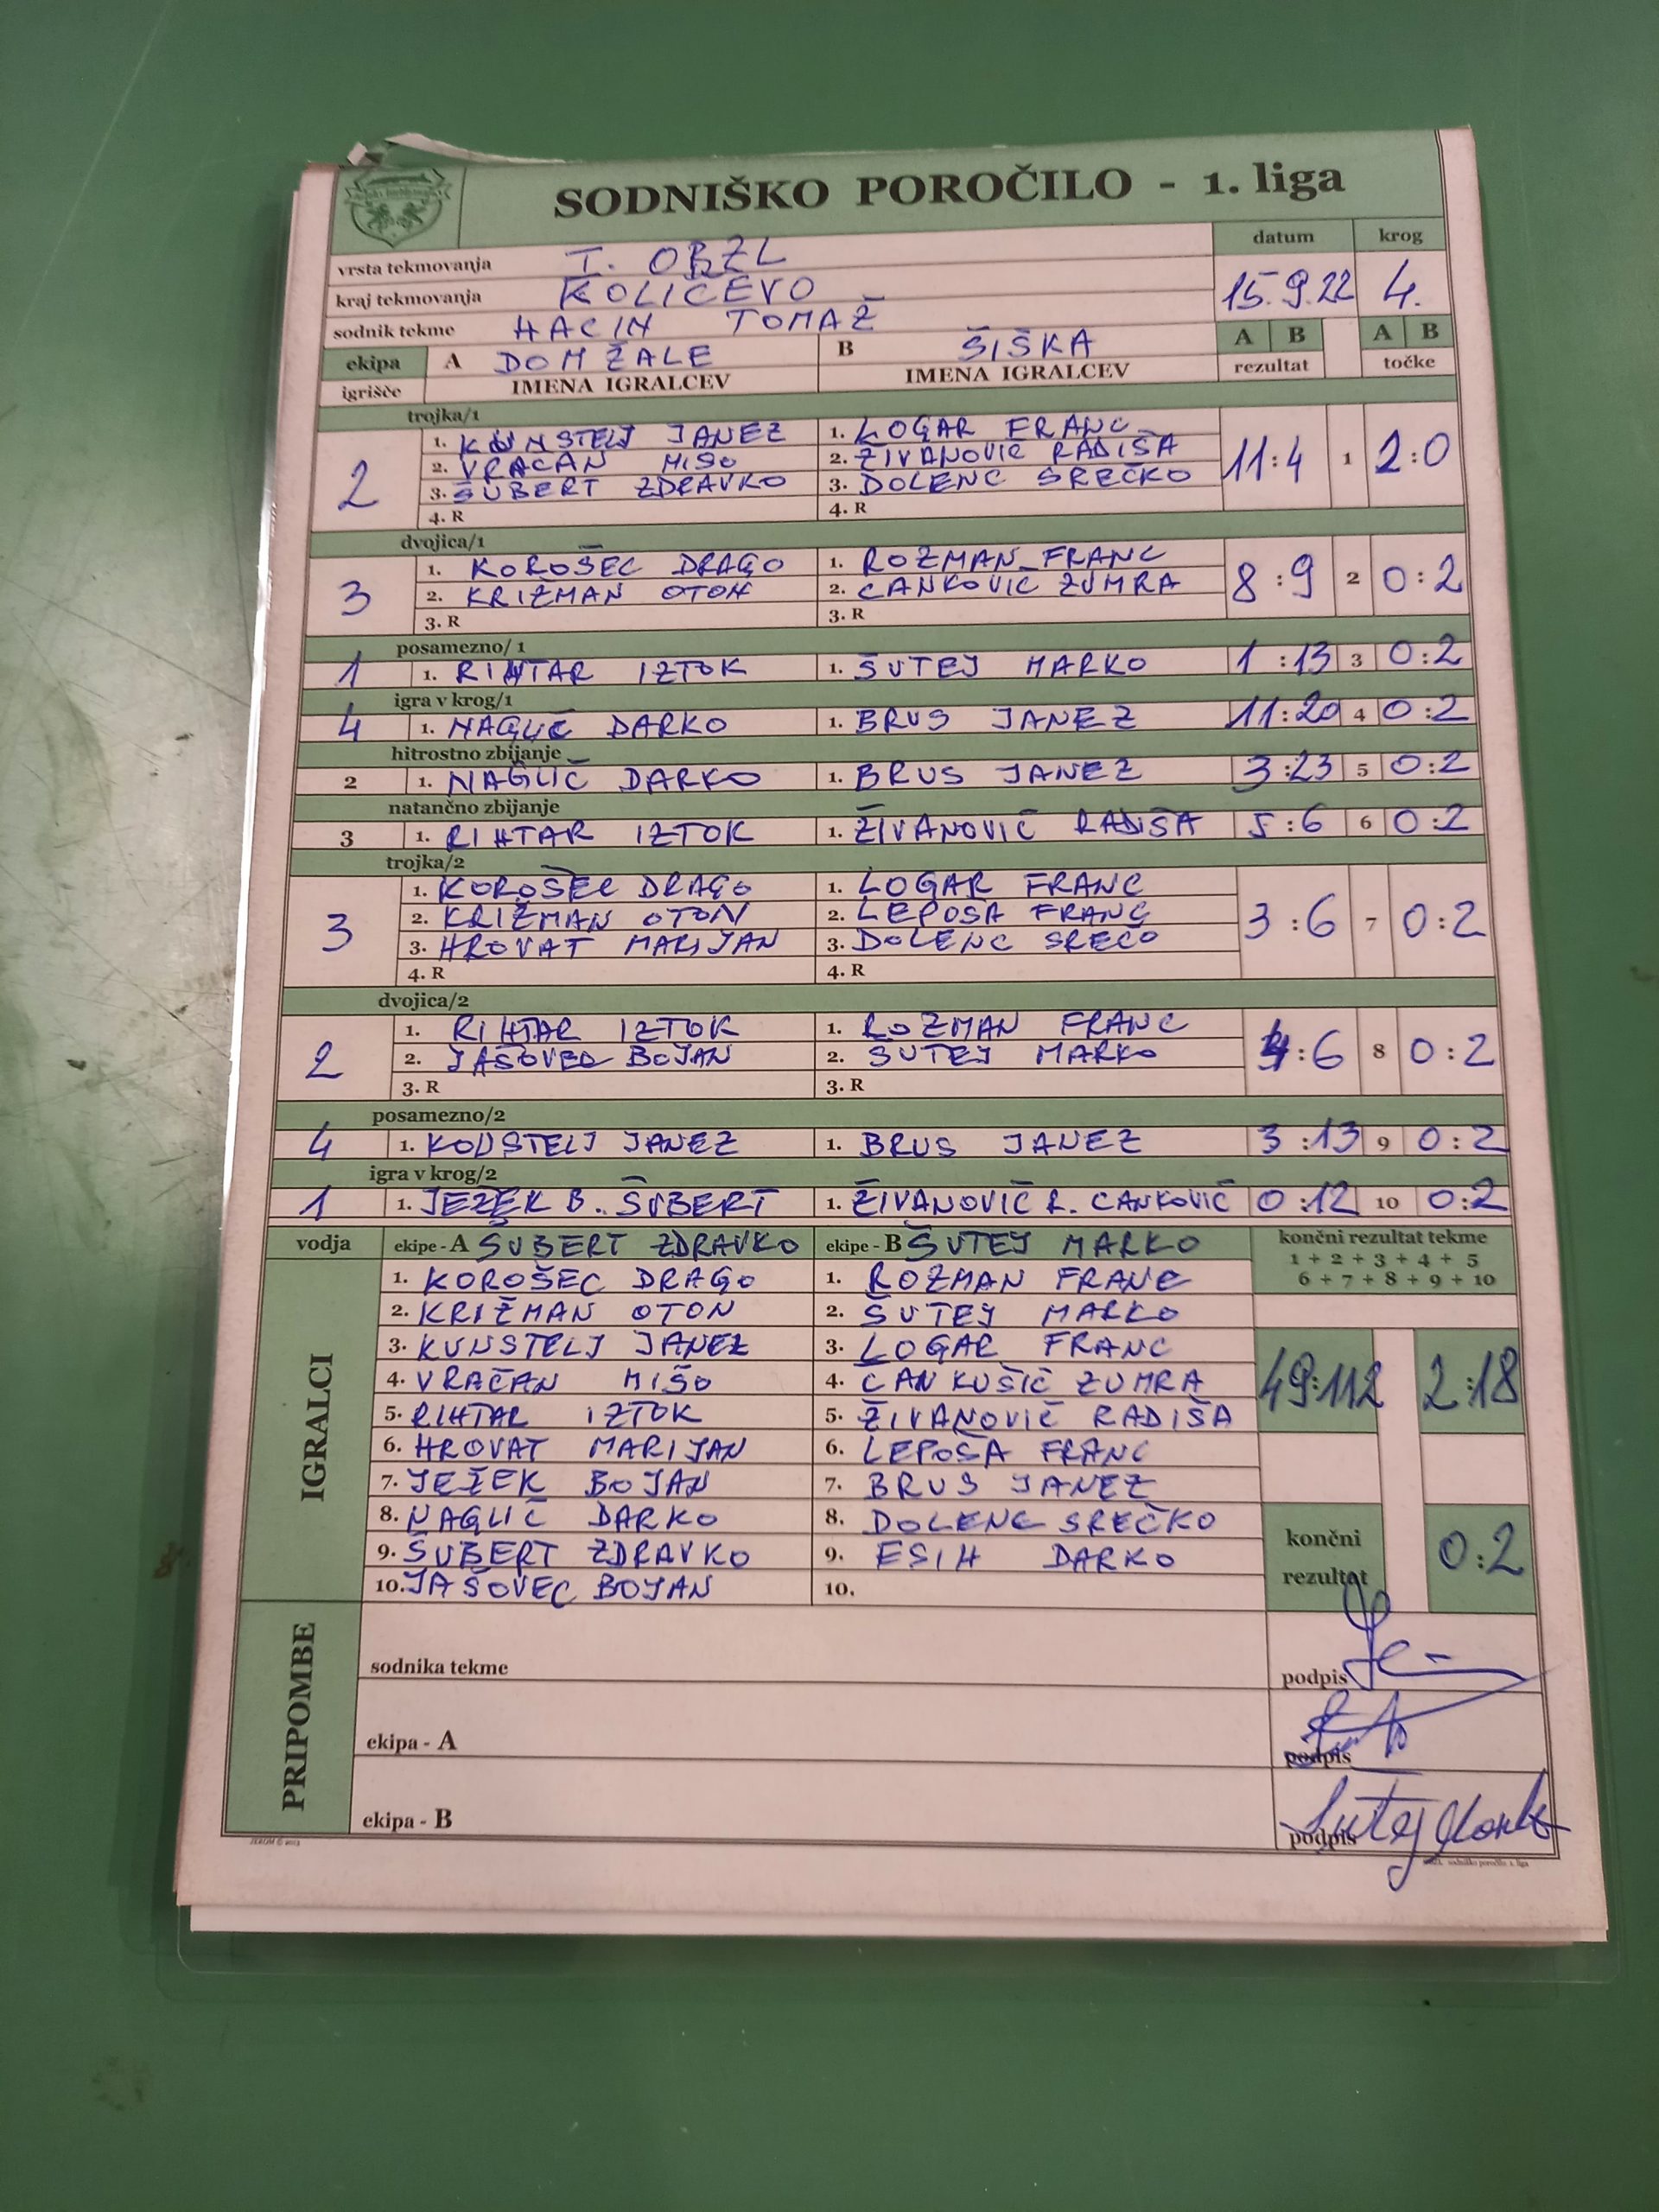 SODNIŠKO POROČILO - 1. liga
vrsta tekmovanja I. OBZL
datum krog
kraj tekmovanja KOLIČEVO
15.9.22 4.
sodnik tekme HACIN TOMAŽ
ekipa A DOMŽALE B ŠIŠKA A B A B
igrišče IMENA IGRALCEV IMENA IGRALCEV rezultat točke
trojka/1
1. KUNSTELJ JANEZ 1. LOGAR FRANC
2 2. VRAČAN MIŠO 2. ŽIVANOVIČ RADIŠA 11:4 1 2:0
3. ŠUBERT ZDRAVKO 3. DOLENC SREČKO
4. R 4. R
dvojica/1
1. KOROŠEC DRAGO 1. ROZMAN FRANC
3 2. KRIŽMAN OTON 2. CANKOVIČ ZUMRA 8:9 2 0:2
3. R 3. R
posamezno/ 1
1 1. RIHTAR IZTOK 1. ŠUTEJ MARKO 1:13 3 0:2
igra v krog/1
4 1. NAGLIČ DARKO 1. BRUS JANEZ 11:20 4 0:2
hitrostno zbijanje
2 1. NAGLIČ DARKO 1. BRUS JANEZ 3:23 5 0:2
natančno zbijanje
3 1. RIHTAR IZTOK 1. ŽIVANOVIČ RADIŠA 5:6 6 0:2
trojka/2
1. KOROŠEC DRAGO 1. LOGAR FRANC
3 2. KRIŽMAN OTON 2. LEPOŠA FRANC 3:6 7 0:2
3. HROVAT MARIJAN 3. DOLENC SREČO
4. R 4. R
dvojica/2
1. RIHTAR IZTOK 1. ROZMAN FRANC
2 2. JAŠOVEC BOJAN 2. ŠUTEJ MARKO 4:6 8 0:2
3. R 3. R
posamezno/2
4 1. KUNSTELJ JANEZ 1. BRUS JANEZ 3:13 9 0:2
igra v krog/2
1 1. JEŽEK B. ŠUBERT 1. ŽIVANOVIČ R. CANKOVIČ 0:12 10 0:2
vodja ekipe - A ŠUBERT ZDRAVKO ekipe - B ŠUTEJ MARKO končni rezultat tekme
1 + 2 + 3 + 4 + 5
6 + 7 + 8 + 9 + 10
IGRALCI
1. KOROŠEC DRAGO 1. ROZMAN FRANC
2. KRIŽMAN OTON 2. ŠUTEJ MARKO
3. KUNSTELJ JANEZ 3. LOGAR FRANC
4. VRAČAN MIŠO 4. CANKUŠIČ ZUMRA 49:112 2:18
5. RIHTAR IZTOK 5. ŽIVANOVIČ RADIŠA
6. HROVAT MARIJAN 6. LEPOŠA FRANC
7. JEŽEK BOJAN 7. BRUS JANEZ
8. NAGLIČ DARKO 8. DOLENC SREČKO
9. ŠUBERT ZDRAVKO 9. ESIH DARKO
10. JAŠOVEC BOJAN 10.
končni rezultat 0:2
PRIPOMBE
sodnika tekme podpis
ekipa - A podpis
ekipa - B podpis Šutej Marko